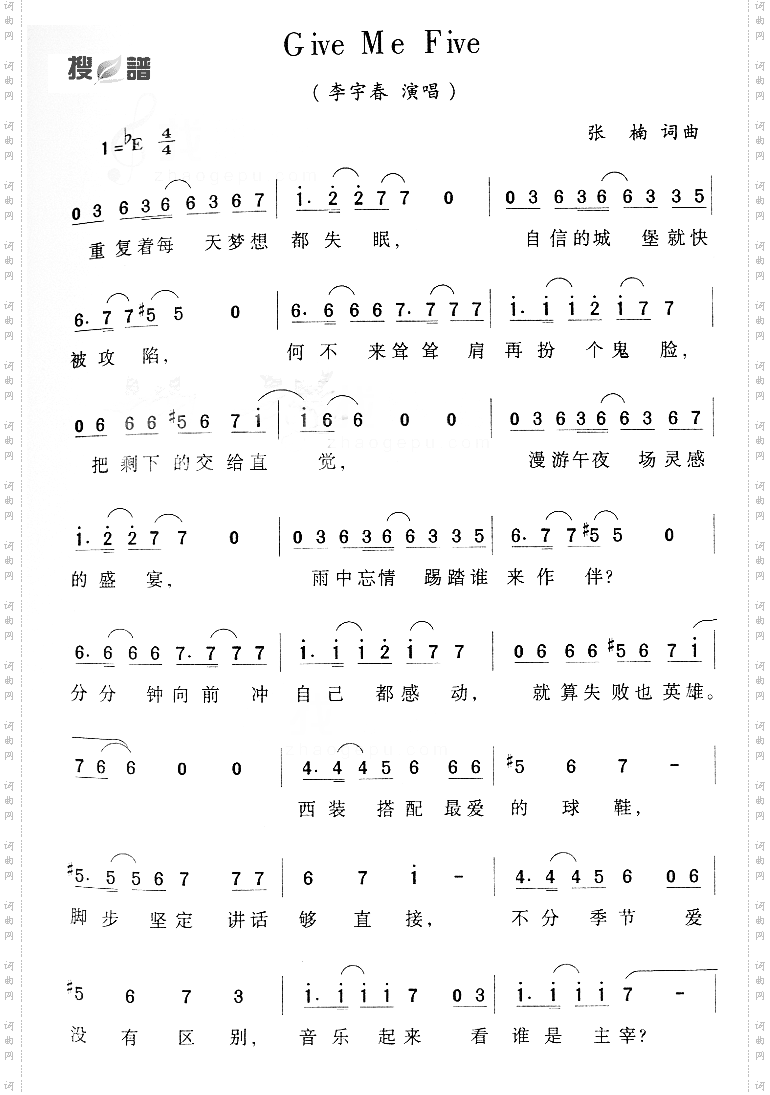 Give Me Five
搜 譜
(李宇春 演唱)
1=♭E 4/4
张 楠 词曲
0 3 6 3 6 6 3 6 7 | 1̇. 2̇ 2̇ 7 7 0 | 0 3 6 3 6 6 3 3 5 |
重复着每 天梦想 都 失 眠, 自信的城 堡就快
6. 7 7 #5 5 0 | 6. 6 6 6 7. 7 7 7 | 1̇. 1̇ 1̇ 2̇ 1̇ 7 7 |
被 攻 陷, 何 不 来耸耸 肩 再 扮 个鬼 脸,
0 6 6 6 #5 6 7 1̇ | 1̇ 6 6 0 0 | 0 3 6 3 6 6 3 6 7 |
把 剩下 的交 给直 觉, 漫游午夜 场灵感
1̇. 2̇ 2̇ 7 7 0 | 0 3 6 3 6 6 3 3 5 | 6. 7 7 #5 5 0 |
的 盛 宴, 雨中忘情 踢踏谁 来 作 伴?
6. 6 6 6 7. 7 7 7 | 1̇. 1̇ 1̇ 2̇ 1̇ 7 7 | 0 6 6 6 6 #5 6 7 1̇ |
分 分 钟向前 冲 自 己 都感 动, 就 算失 败也 英雄。
7 6 6 0 0 | 4. 4 4 5 6 6 6 | #5 6 7 – |
西 装 搭配 最爱 的 球 鞋,
#5. 5 5 6 7 7 7 | 6 7 1̇ – | 4. 4 4 5 6 0 6 |
脚 步 坚定 讲话 够 直 接, 不 分 季节 爱
#5 6 7 3 | 1̇. 1̇ 1̇ 1̇ 7 0 3 | 1̇. 1̇ 1̇ 1̇ 7 – |
没 有 区 别, 音 乐 起来 看 谁 是 主 宰?
词曲网